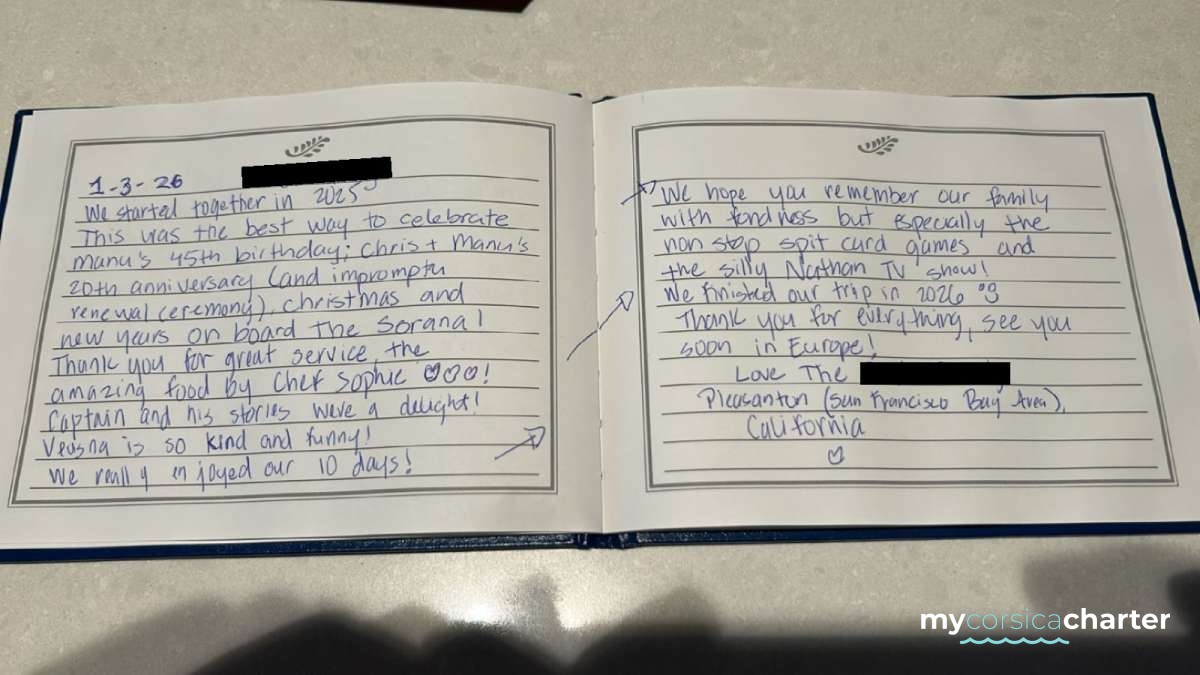 1-3-26
We started together in 2025
This was the best way to celebrate
Manu's 45th birthday; Chris + Manu's
20th anniversary (and impromptu
renewal ceremony), Christmas and
new years on board the Sorana!
Thank you for great service, the
amazing food by Chef Sophie ♡♡♡!
Captain and his stories were a delight!
Veasna is so kind and funny!
We really enjoyed our 10 days!
We hope you remember our family
with fondness but especially the
non stop spit card games and
the silly Nathan TV show!
We finished our trip in 2026
Thank you for everything, see you
soon in Europe!
Love The
Pleasanton (San Francisco Bay Area),
California
♡
mycorsicacharter